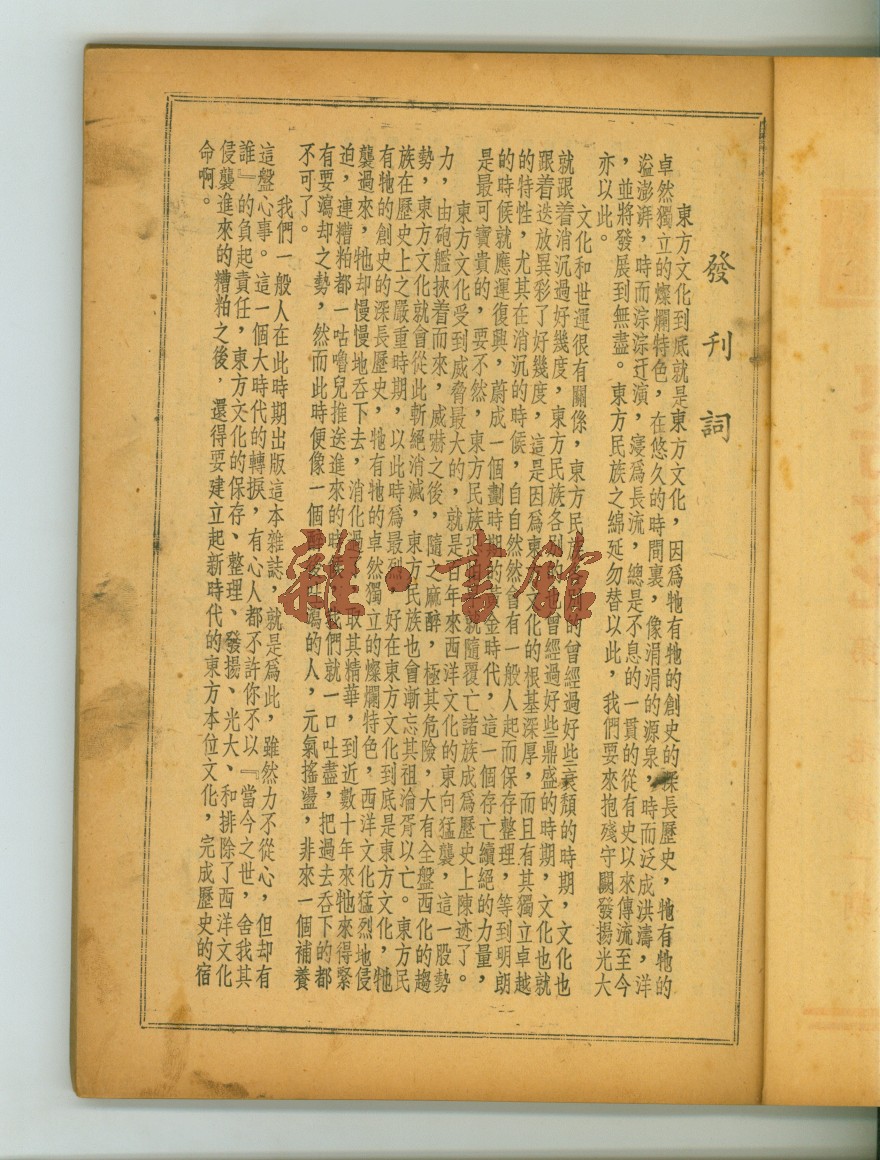 發刊詞
東方文化到底就是東方文化，因爲牠有牠的創史的深長歷史，牠有牠的
卓然獨立的燦爛特色，在悠久的時間裏，像涓涓的源泉，時而泛成洪濤，洋
溢澎湃，時而淙淙迂演，寖爲長流，總是不息的一貫的從有史以來傳流至今
，並將發展到無盡。東方民族之綿延勿替以此，我們要來抱殘守闕發揚光大
亦以此。
文化和世運很有關係，東方民族各別的曾經過好些衰頹的時期，文化也
就跟着消沉過好幾度，東方民族各別的也曾經過好些鼎盛的時期，文化也就
跟着迭放異彩了好幾度，這是因爲東方文化的根基深厚，而且有其獨立卓越
的特性，尤其在消沉的時候，自自然然會有一般人起而保存整理，等到明朗
的時候就應運復興，蔚成一個劃時期的黃金時代，這一個存亡續絕的力量，
是最可寶貴的，要不然，東方民族就隨覆亡諸族成爲歷史上陳迹了。
東方文化受到威脅最大的，就是百年來西洋文化的東向猛襲，這一股勢
力，由砲艦挾着而來，威嚇之後，隨之麻醉，極其危險，大有全盤西化的趨
勢，東方文化就會從此斬絕消滅，東方民族也會漸忘其祖淪胥以亡。東方民
族在歷史上之嚴重時期，以此時爲最烈。好在東方文化到底是東方文化，牠
有牠的創史的深長歷史，牠有牠的卓然獨立的燦爛特色，西洋文化猛烈地侵
襲過來，牠却慢慢地吞下去，消化過了取其精華，到近數十年來牠來得緊
迫，連糟粕都一咕嚕兒推送進來的時候，我們就一口吐盡，把過去吞下的都
有要瀉却之勢，然而此時便像一個吐瀉的人，元氣搖盪，非來一個補養
不可了。
我們一般人在此時期出版這本雜誌，就是爲此，雖然力不從心，但却有
這盤心事。這一個大時代的轉捩，有心人都不許你不以『當今之世，舍我其
誰』的負起責任，東方文化的保存、整理、發揚、光大、和排除了西洋文化
侵襲進來的糟粕之後，還得要建立起新時代的東方本位文化，完成歷史的宿
命啊。
雜·書館